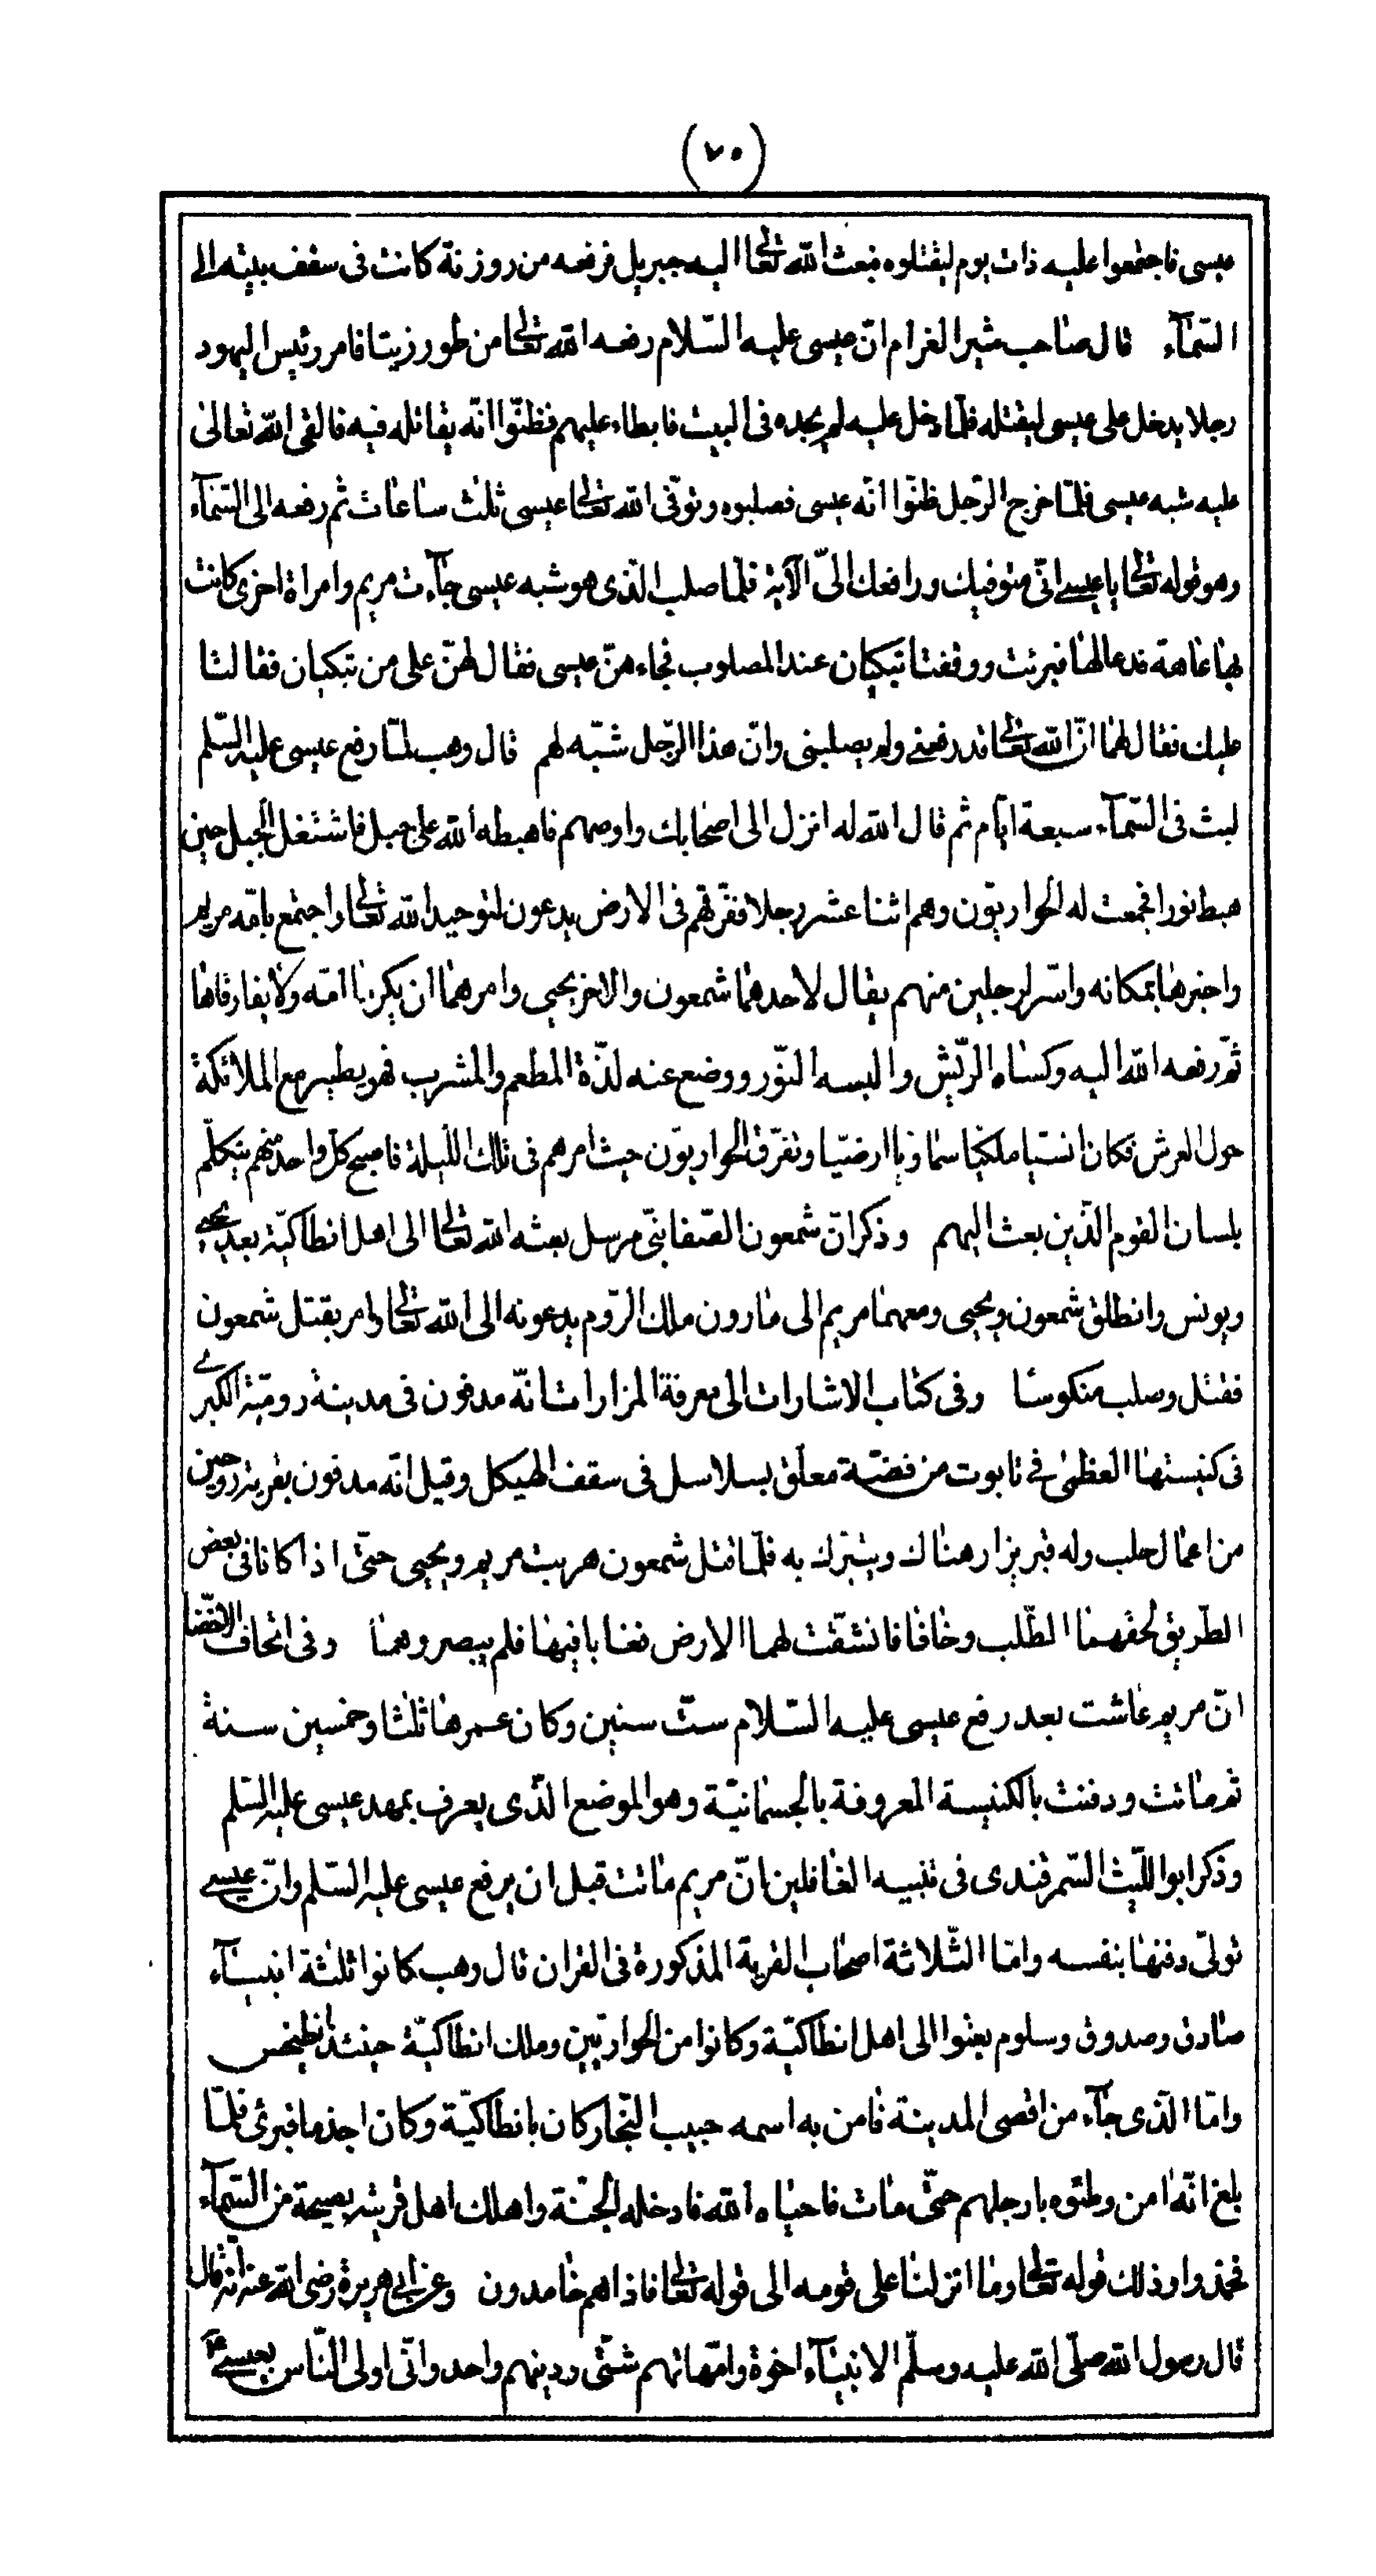 (٧٠)
عيسى فاجتمعوا عليه ذات يوم ليقتلوه فبعث الله تعالى اليه جبريل فرفعه من روزنة كانت فى سقف بيته الى
السّمآء قال صاحب مثير الغرام انّ عيسى عليه السّلام رفعه الله تعالى من طور زيتا فامر رئيس اليهود
رجلا يدخل على عيسى ليقتله فلمّا دخل عليه لم يجده فى البيت فابطاء عليهم فظنّوا انّه يقاتله فيه فالقى الله تعالى
عليه شبه عيسى فلمّا خرج الرّجل ظنّوا انّه عيسى فصلبوه وتوفّى الله تعالى عيسى ثلث ساعات ثم رفعه الى السّمآء
وهو قوله تعالى ياعيسى انّى متوفيك ورافعك الىّ الآية فلمّا صلب الّذى هو شبه عيسى جآءت مريم وامراة اخرى كانت
بها عاهة فدعا لها فبرئت ووقفتا تبكيان عند المصلوب فجاءهنّ عيسى فقال لهنّ على من تبكيان فقالتا
عليك فقال لهما انّ الله تعالى قد رفعنى ولم يصلبنى وانّ هذا الرّجل شبّه لهم قال وهب لمّا رفع عيسى عليه السّلم
لبث فى السّمآء سبعة ايّام ثم قال الله له انزل الى اصحابك واوصهم فاهبطه الله على جبل فاشتغل الجبل حين
هبط نورا فجمعت له الحواريّون وهم اثنا عشر رجلا ففرّقهم فى الارض يدعون لتوحيد الله تعالى واجتمع بامّه مريم
واخبرها بمكانه واسّر لرجلين منهم يقال لاحدهما شمعون والاخر يحيى وامرهما ان يكرما امّه ولا يفارقاها
ثمّ رفعه الله اليه وكساه الرّيش والبسه النّور ووضع عنه لذّة المطعم والمشرب فهو يطير مع الملائكة
حول العرش فكان انسيّا ملكيّا سماويّا ارضيّا وتفرّق الحواريّون حيث امرهم فى تلك اللّيلة فاصبح كلّ واحد منهم يتكلّم
بلسان القوم الّذين بعث اليهم وذكر انّ شمعون الصّفا نبىّ مرسل بعثه الله تعالى الى اهل انطاكيّة بعد يحيى
ويونس وانطلق شمعون ويحيى ومعهما مريم الى مارون ملك الرّوم يدعونه الى الله تعالى وامر بقتل شمعون
فقتل وصلب منكوسا وفى كتاب الاشارات الى معرفة المزارات انّه مدفون فى مدينة روميّة الكبرى
فى كنيستها العظمى فى تابوت من فضّة معلّق بسلاسل فى سقف الهيكل وقيل انّه مدفون بقرية روحين
من اعمال حلب وله قبر يزار هناك ويتبرّك به فلمّا قتل شمعون هربت مريم ويحيى حتّى اذا كانا فى بعض
الطّريق لحقهما الطّلب وخافا فانشقّت لهما الارض فغابا فيها فلم يبصروهما وفى اتحاف الاخصّا
انّ مريم عاشت بعد رفع عيسى عليه السّلام ستّ سنين وكان عمرها ثلثا وخمسين سنة
ثم ماتت ودفنت بالكنيسة المعروفة بالجسمانيّة وهو الموضع الّذى يعرف بمهد عيسى عليه السّلم
وذكر ابو اللّيث السّمرقندى فى تنبيه الغافلين انّ مريم ماتت قبل ان يرفع عيسى عليه السّلم وانّ عيسى
تولّى دفنها بنفسه وامّا الثّلاثة اصحاب القرية المذكورة فى القران قال وهب كانوا ثلثة انبيآء
صادق وصدوق وسلوم بعثوا الى اهل انطاكيّة وكانوا من الحواريّين وملك انطاكيّة حينئذ انطيخس
وامّا الّذى جآء من اقصى المدينة فامن به اسمه حبيب النّجار كان بانطاكيّة وكان اجذما فبرئ فلمّا
بلغ انّه امن وطئوه بارجلهم حتّى مات فاحياه الله فادخله الجنّة واهلك اهل قريته بصيحة من السّمآء
فخمدوا وذلك قوله تعالى وما انزلنا على قومه الى قوله تعالى فاذاهم خامدون وعن ابى هريرة رضى الله عنه انّه قال
قال رسول الله صلّى الله عليه وسلّم الانبيآء اخوة وامّهاتهم شتّى ودينهم واحد وانّى اولى النّاس بعيسى